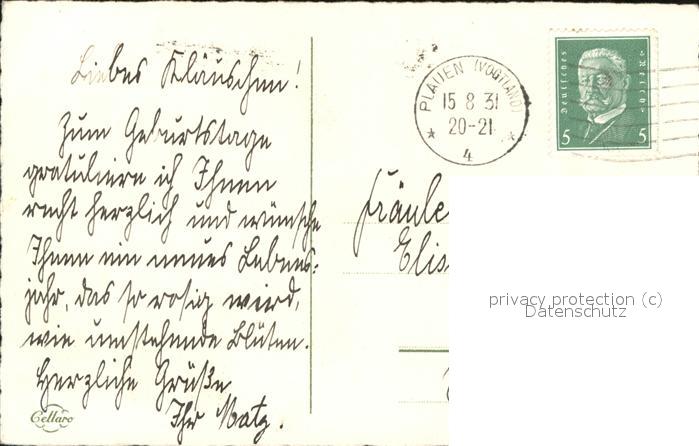 Liebes Kläuschen!
Zum Geburtstage
gratuliere ich Ihnen
recht herzlich und wünsche
Ihnen ein neues Lebens-
jahr, das so rosig wird,
wie umstehende Blüten.
Herzliche Grüße
Ihr Matz.
Cellaro
PLAUEN (VOGTLAND)
15 8 31
20-21
4
Deutsches Reich
5 5
Fräule
Elis
privacy protection (c)
Datenschutz